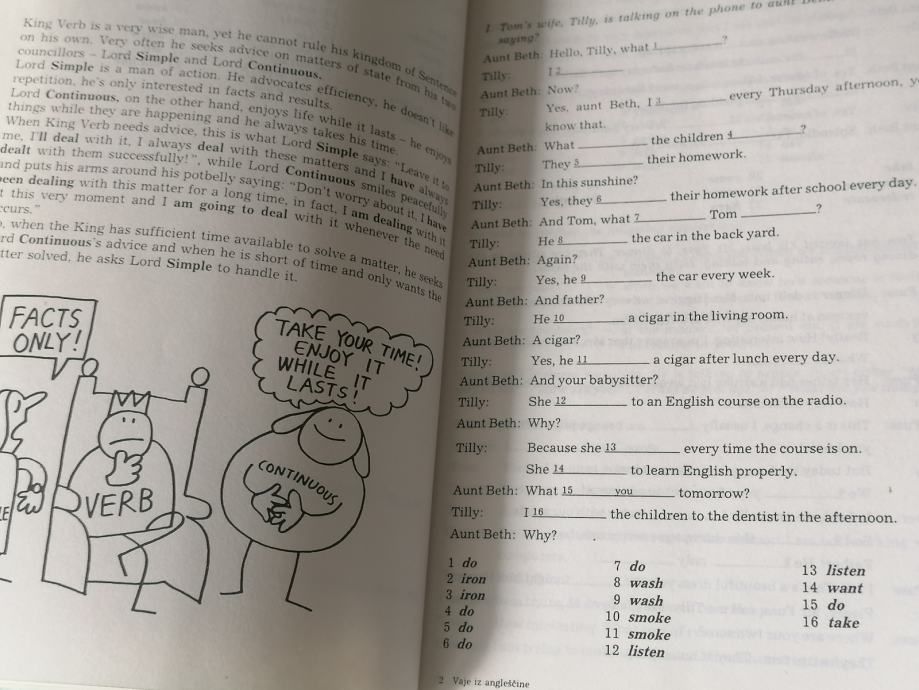 King Verb is a very wise man, yet he cannot rule his kingdom of Sentence
on his own. Very often he seeks advice on matters of state from his two
councillors – Lord Simple and Lord Continuous.
Lord Simple is a man of action. He advocates efficiency, he doesn't like
repetition, he's only interested in facts and results.
Lord Continuous, on the other hand, enjoys life while it lasts – he enjoys
things while they are happening and he always takes his time.
When King Verb needs advice, this is what Lord Simple says: "Leave it to
me, I'll deal with it, I always deal with these matters and I have always
dealt with them successfully!", while Lord Continuous smiles peacefully
and puts his arms around his potbelly saying: "Don't worry about it, I have
been dealing with this matter for a long time, in fact, I am dealing with it
this very moment and I am going to deal with it whenever the need
when the King has sufficient time available to solve a matter, he seeks
Continuous's advice and when he is short of time and only wants the
solved, he asks Lord Simple to handle it.
FACTS
ONLY!
TAKE YOUR TIME!
ENJOY IT
WHILE IT
LASTS!
VERB
CONTINUOUS
1. Tom's wife, Tilly, is talking on the phone to aunt
saying?
Aunt Beth: Hello, Tilly, what 1 ?
Tilly: I 2
Aunt Beth: Now?
Tilly: Yes, aunt Beth, I 3 every Thursday afternoon,
know that.
Aunt Beth: What the children 4 ?
Tilly: They 5 their homework.
Aunt Beth: In this sunshine?
Tilly: Yes, they 6 their homework after school every day.
Aunt Beth: And Tom, what 7 Tom ?
Tilly: He 8 the car in the back yard.
Aunt Beth: Again?
Tilly: Yes, he 9 the car every week.
Aunt Beth: And father?
Tilly: He 10 a cigar in the living room.
Aunt Beth: A cigar?
Tilly: Yes, he 11 a cigar after lunch every day.
Aunt Beth: And your babysitter?
Tilly: She 12 to an English course on the radio.
Aunt Beth: Why?
Tilly: Because she 13 every time the course is on.
She 14 to learn English properly.
Aunt Beth: What 15 you tomorrow?
Tilly: I 16 the children to the dentist in the afternoon.
Aunt Beth: Why?
1 do
2 iron
3 iron
4 do
5 do
6 do
7 do
8 wash
9 wash
10 smoke
11 smoke
12 listen
13 listen
14 want
15 do
16 take
2 Vaje iz angleščine